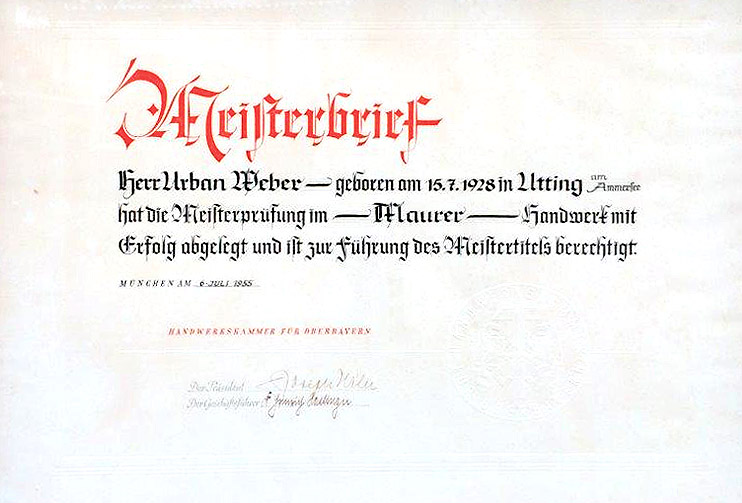 Meisterbrief
Herr Urban Weber — geboren am 15.7.1928 in Utting am Ammersee
hat die Meisterprüfung im — Maurer — Handwerk mit
Erfolg abgelegt und ist zur Führung des Meistertitels berechtigt.
MÜNCHEN AM 6. JULI 1955
HANDWERKSKAMMER FÜR OBERBAYERN
Der Präsident Joseph
Der Geschäftsführer Heinrich